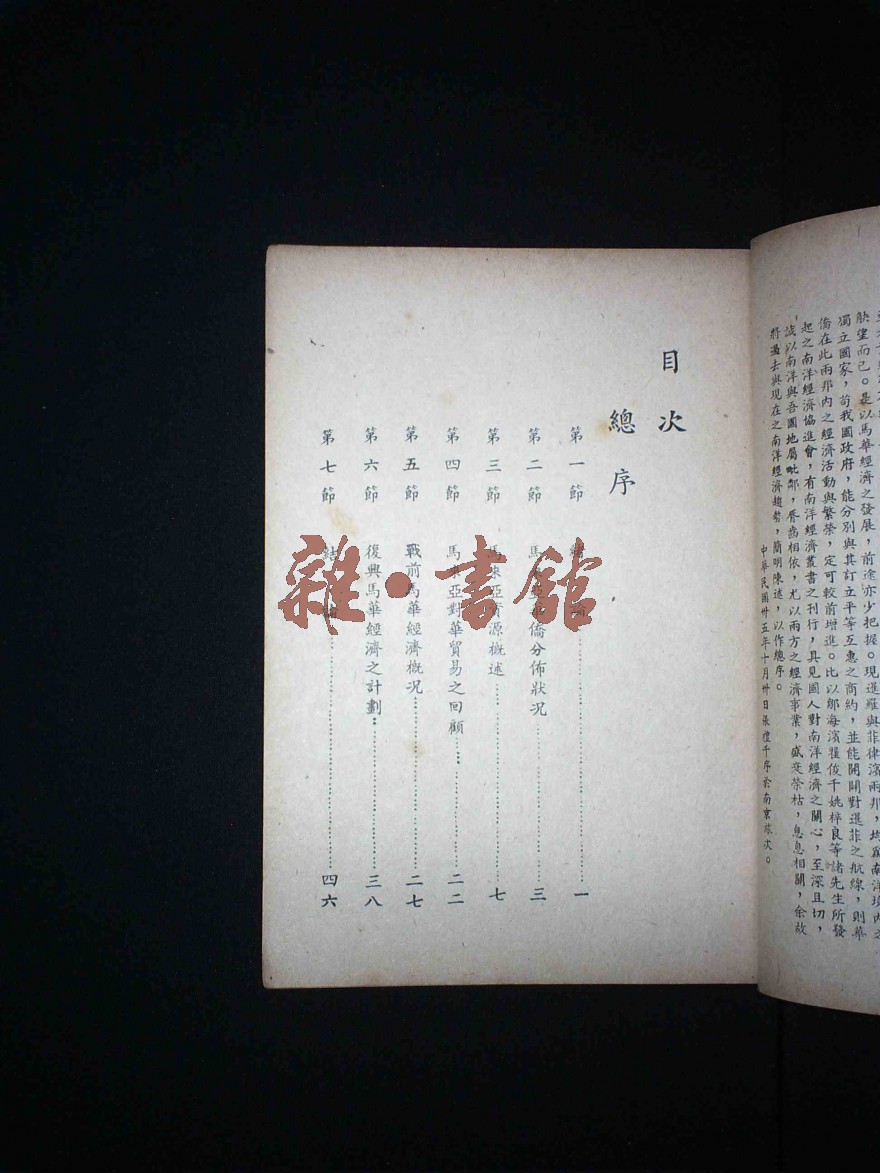 缺望而已。是以馬華經濟之發展，前途亦少把握。現暹羅與菲律濱兩邦，均為南洋境內之
獨立國家，茍我國政府，能分別與其訂立平等互惠之商約，並能開闢對暹菲之航線，則華
僑在此兩邦內之經濟活動與繁榮，定可較前增進。比以鄔海濱羅俊千姚梓良等諸先生所發
起之南洋經濟協進會，有南洋經濟叢書之刊行，具見國人對南洋經濟之關心，至深且切，
誠以南洋與吾國地屬毗鄰，唇齒相依，尤以兩方之經濟事業，盛衰榮枯，息息相關，余故
將過去與現在之南洋經濟趨勢，簡明陳述，以作總序。
中華民國卅五年十月卅日張禮千序於南京旅次。
目次
總序
第一節 緒論……一
第二節 馬來亞華僑分佈狀況……三
第三節 馬來亞資源概述……七
第四節 馬來亞對華貿易之回顧……二二
第五節 戰前馬華經濟概況……二七
第六節 復興馬華經濟之計劃……三八
第七節 結論……四六
雜·書館